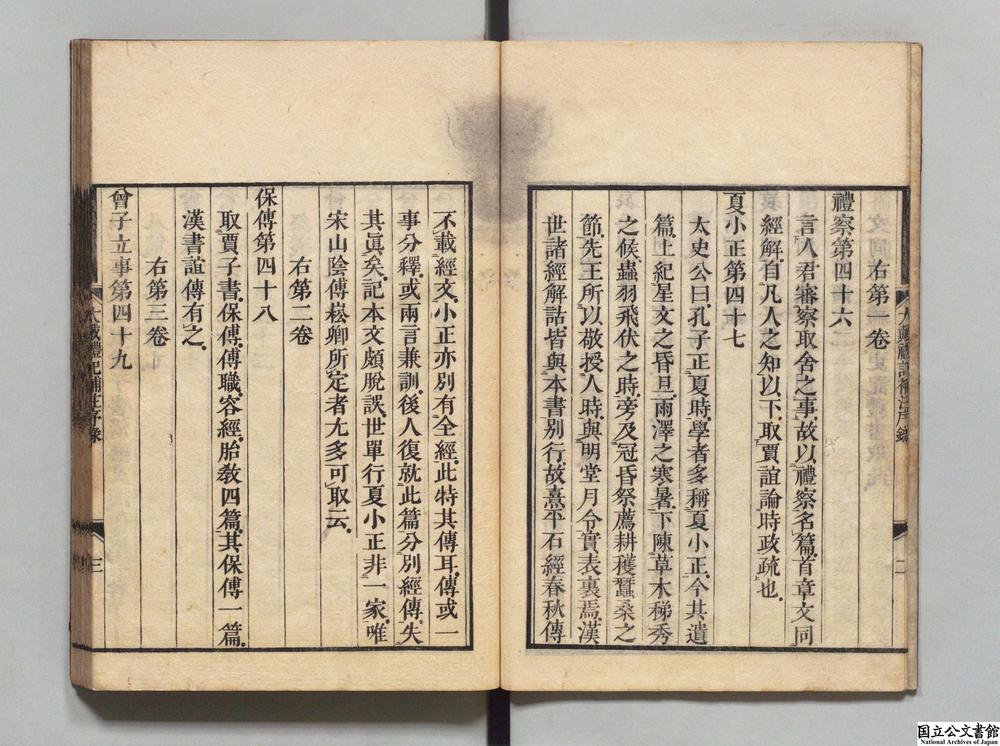 右第一卷
禮察第四十六
言人君審察取舍之事故以禮察名篇首章文同
經解有凡人之知以下取賈誼論時政疏也
夏小正第四十七
太史公曰孔子正夏時學者多稱夏小正今其遺
篇上紀星文之昏旦雨澤之寒暑下陳草木稊秀
之候蟲羽飛伏之時旁及冠昏祭薦耕穫蠶桑之
節先王所以敬授人時與明堂月令實表裏焉漢
世諸經解詁皆與本書別行故熹平石經春秋傳
不載經文小正亦別有全經此特其傳耳傳或一
事分釋或兩言兼訓後人復就此篇分別經傳失
其眞矣記本文頗脫誤世單行夏小正非一家唯
宋山陰傅崧卿所定者尤多可取云
右第二卷
保傅第四十八
取賈子書保傅傅職容經胎敎四篇其保傅一篇
漢書誼傳有之
右第三卷
曾子立事第四十九
大戴禮記補注序錄
三
大戴禮記補注序錄
二
国立公文書館
National Archives of Japan